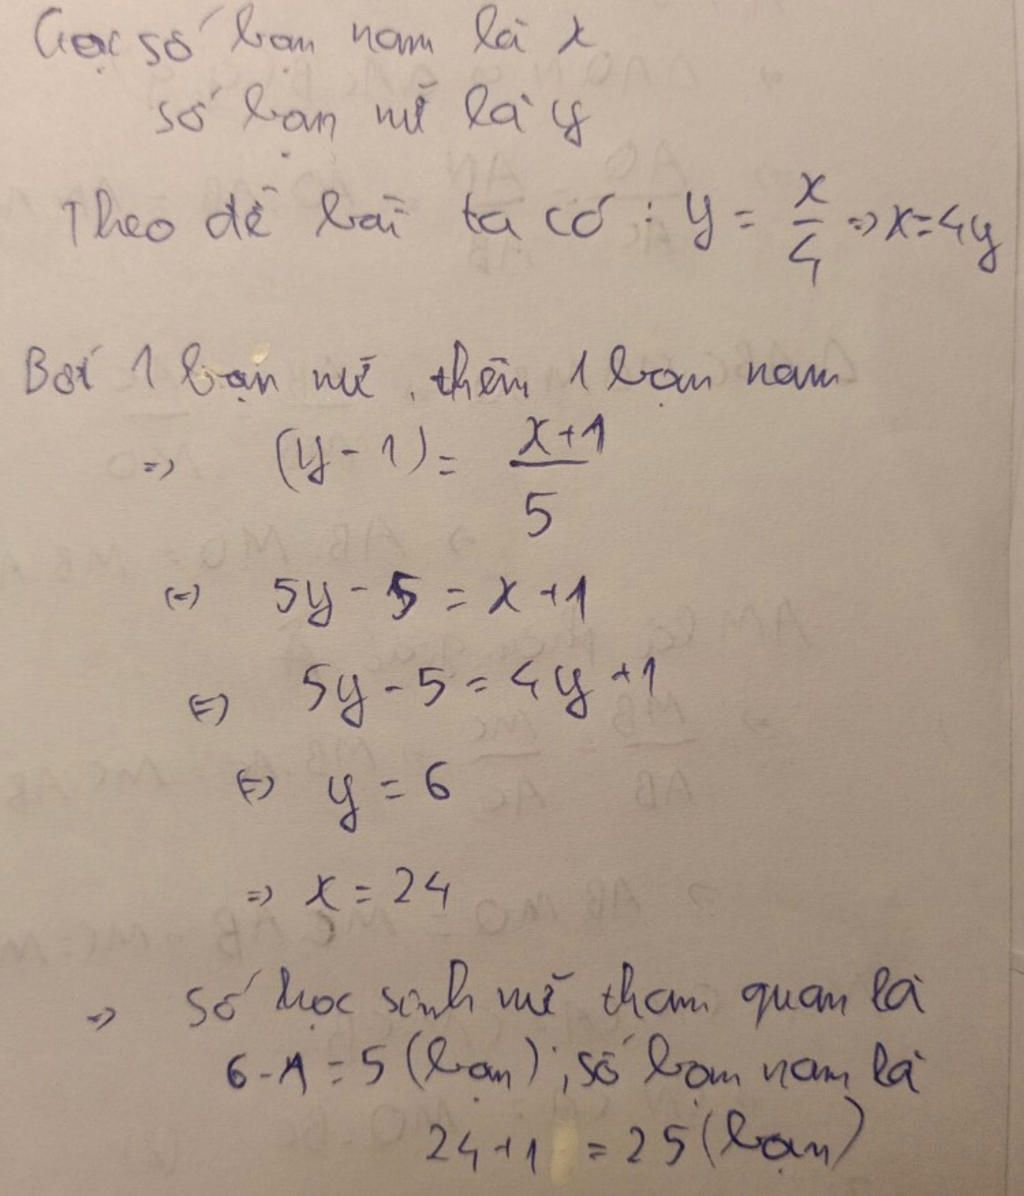 Gọi số bạn nam là x
số bạn nữ là y
Theo đề bài ta có : y = x/4 => x = 4y
Bớt 1 bạn nữ, thêm 1 bạn nam
=> (y - 1) = x+1/5
(=) 5y - 5 = x + 1
(=) 5y - 5 = 4y + 1
(=) y = 6
=> x = 24
=> số học sinh nữ tham quan là
6 - 1 = 5 (bạn) ; số bạn nam là
24 + 1 = 25 (bạn)